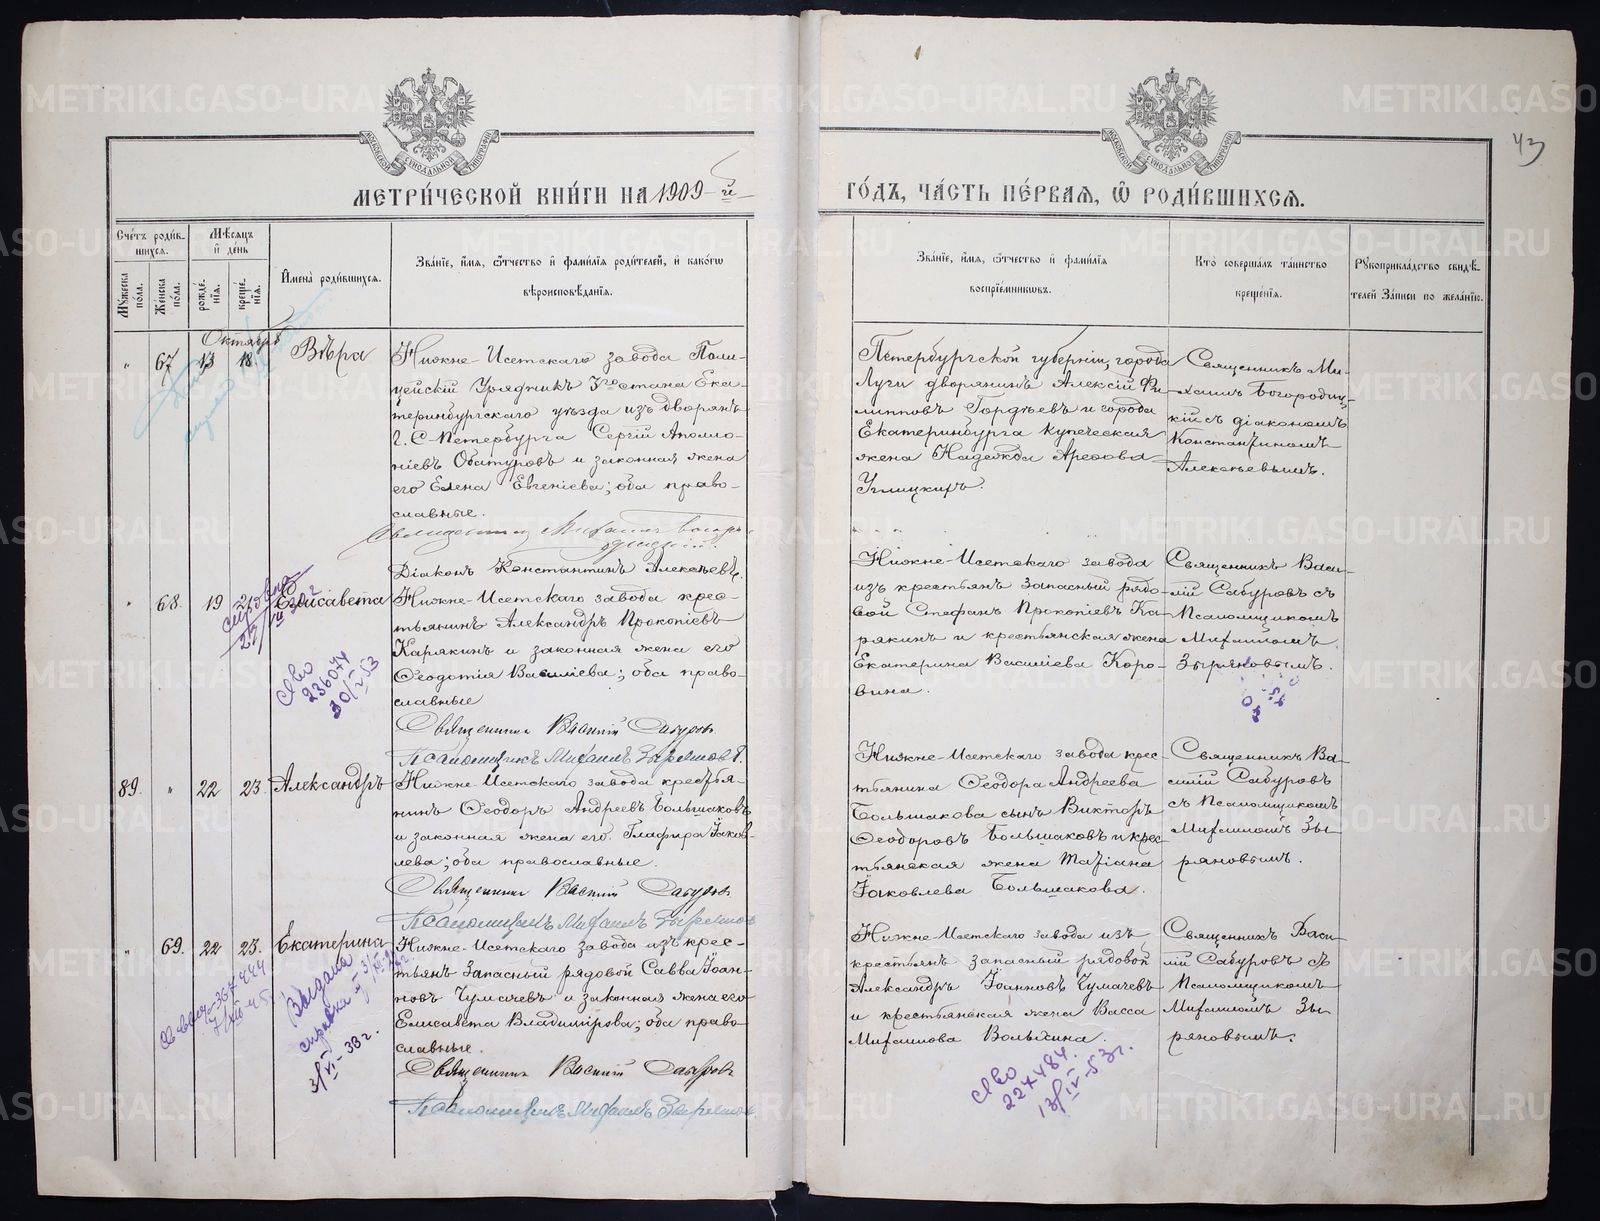 43
МОСКОВСКОЙ СѴНОДАЛЬНОЙ ТИПОГРАФІИ
МОСКОВСКОЙ СѴНОДАЛЬНОЙ ТИПОГРАФІИ
МЕТРИ́ЧЕСКОЙ КНИ́ГИ НА 1909-й
ГО́ДЪ, ЧА́СТЬ ПЕ́РВАѦ, Ѡ҆ РОДИ́ВШИХСѦ.
Сче́тъ роди́в-
шихсѧ.
Мꙋжеска по́ла.
Же́нска по́ла.
Мѣ́сѧцъ
и҆ де́нь
рожде́-
нїѧ.
креще́-
нїѧ.
И҆мена̀ роди́вшихсѧ.
Зва́нїе, и҆́мѧ, ѻ҆́тчество и҆ фами́лїѧ роди́телей, и҆ како́гѡ
вѣроисповѣ́данїѧ.
Зва́нїе, и҆́мѧ, ѻ҆́тчество и҆ фами́лїѧ
воспрїе́мникѡвъ.
Кто̀ соверша́лъ та́инство
креще́нїѧ.
Рꙋкоприкла́дство свидѣ́-
телей за́писи по жела́нїю.
Октябрь
" 67 13 18 Вѣра
Нижне-Исетскаго завода Поли-
цейскій Урядникъ 3го стана Ека-
теринбургскаго уѣзда изъ дворянъ
г. С-Петербурга Сергій Аполло-
ніевъ Обатуровъ и законная жена
его Елена Евгеніева; оба право-
славные.
Священникъ Михаилъ Богоро-
дицкій.
Діаконъ Константинъ Алексѣевъ.
Петербургской губерніи, города
Луги дворянинъ Алексій Фи-
липповъ Гордѣевъ и города
Екатеринбурга купеческая
жена Надежда Арефова
Углицкихъ.
Священникъ Ми-
хаилъ Богородиц-
кій съ діакономъ
Константиномъ
Алексѣевымъ.
" 68. 19 21 Елисавета
Нижне-Исетскаго завода крес-
тьянинъ Александръ Прокопіевъ
Карякинъ и законная жена его
Ѳеодотія Василіева; оба право-
славные
Священникъ Василій Сабуровъ
Псаломщикъ Михаилъ Зыряновъ.
Нижне-Исетскаго завода
изъ крестьянъ запасный рядо-
вой Стефанъ Прокопіевъ Ка-
рякинъ и крестьянская жена
Екатерина Василіева Коро-
вина.
Священникъ Васи-
лій Сабуровъ съ
Псаломщикомъ
Михаиломъ
Зыряновымъ.
св во
236074
30/V 53
89. " 22 23 Александръ
Нижне-Исетскаго завода крестья-
нинъ Ѳеодоръ Андреевъ Большаковъ
и законная жена его Глафира Іаков-
лева; оба православные.
Священникъ Василій Сабуровъ
Псаломщикъ Михаилъ Зыряновъ
Нижне-Исетскаго завода крес-
тьянина Ѳеодора Андреева
Большакова сынъ Викторъ
Ѳеодоровъ Большаковъ и крес-
тьянская жена Татіана
Іаковлева Большакова.
Священникъ Ва-
силій Сабуровъ
съ Псаломщикомъ
Михаиломъ Зы-
ряновымъ.
" 69. 22 23. Екатерина
Нижне-Исетскаго завода изъ крес-
тьянъ запасный рядовой Савва Іоан-
новъ Чумачевъ и законная жена его
Елисавета Владимірова; оба право-
славные.
Священникъ Василій Сабуровъ
Псаломщикъ Михаилъ Зыряновъ
Нижне-Исетскаго завода изъ
крестьянъ запасный рядовой
Александръ Іоанновъ Чумачевъ
и крестьянская жена Васса
Михаилова Волыхина.
Священникъ Васи-
лій Сабуровъ съ
Псаломщикомъ
Михаиломъ Зы-
ряновымъ.
Выдана
справка
3/VI-38г.
св во
227484.
13/IV-53г.
METRIKI.GASO-URAL.RU